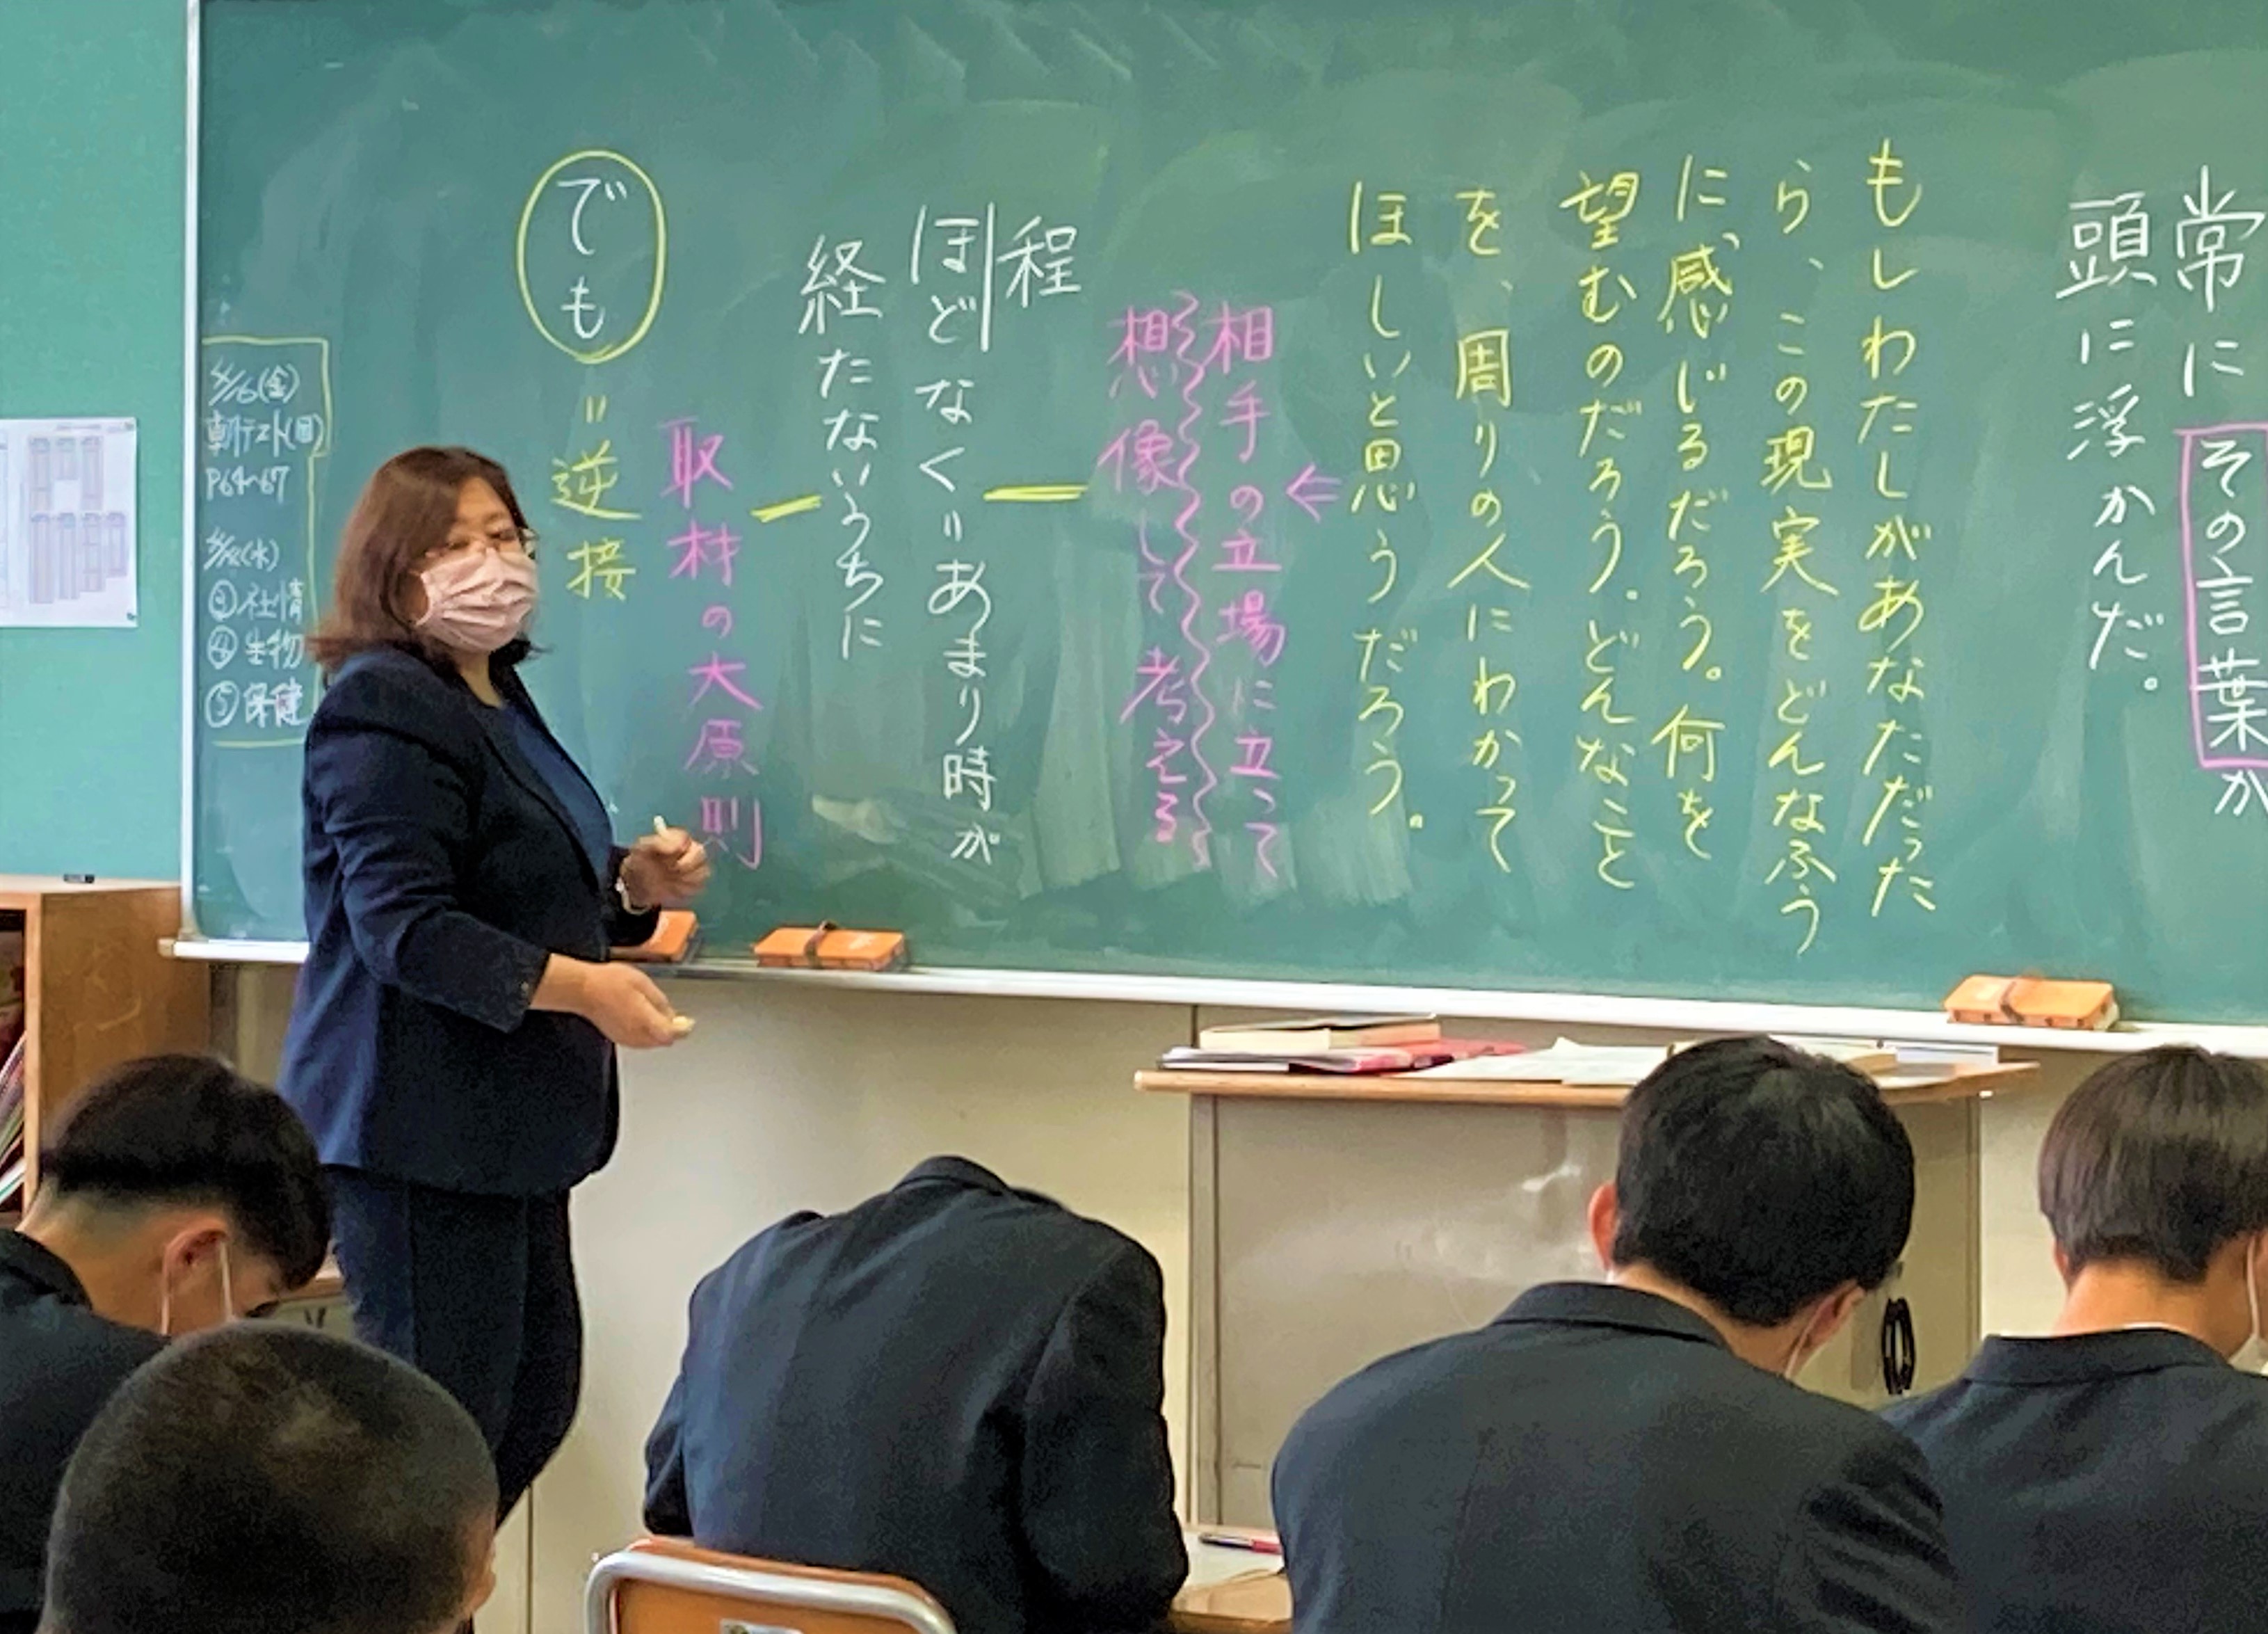 常に その言葉が
頭に浮かんだ。
もしわたしがあなただった
ら、この現実をどんなふう
に感じるだろう。何を
望むのだろう。どんなこと
を、周りの人にわかって
ほしいと思うだろう。
⇐
相手の立場に立って
想像して考える
程
ほどなく＝あまり時が
経たないうちに
取材の大原則
でも＝逆接
(金)
朝テスト(国)
P64~67
(水)
社情
④生物
⑤保健